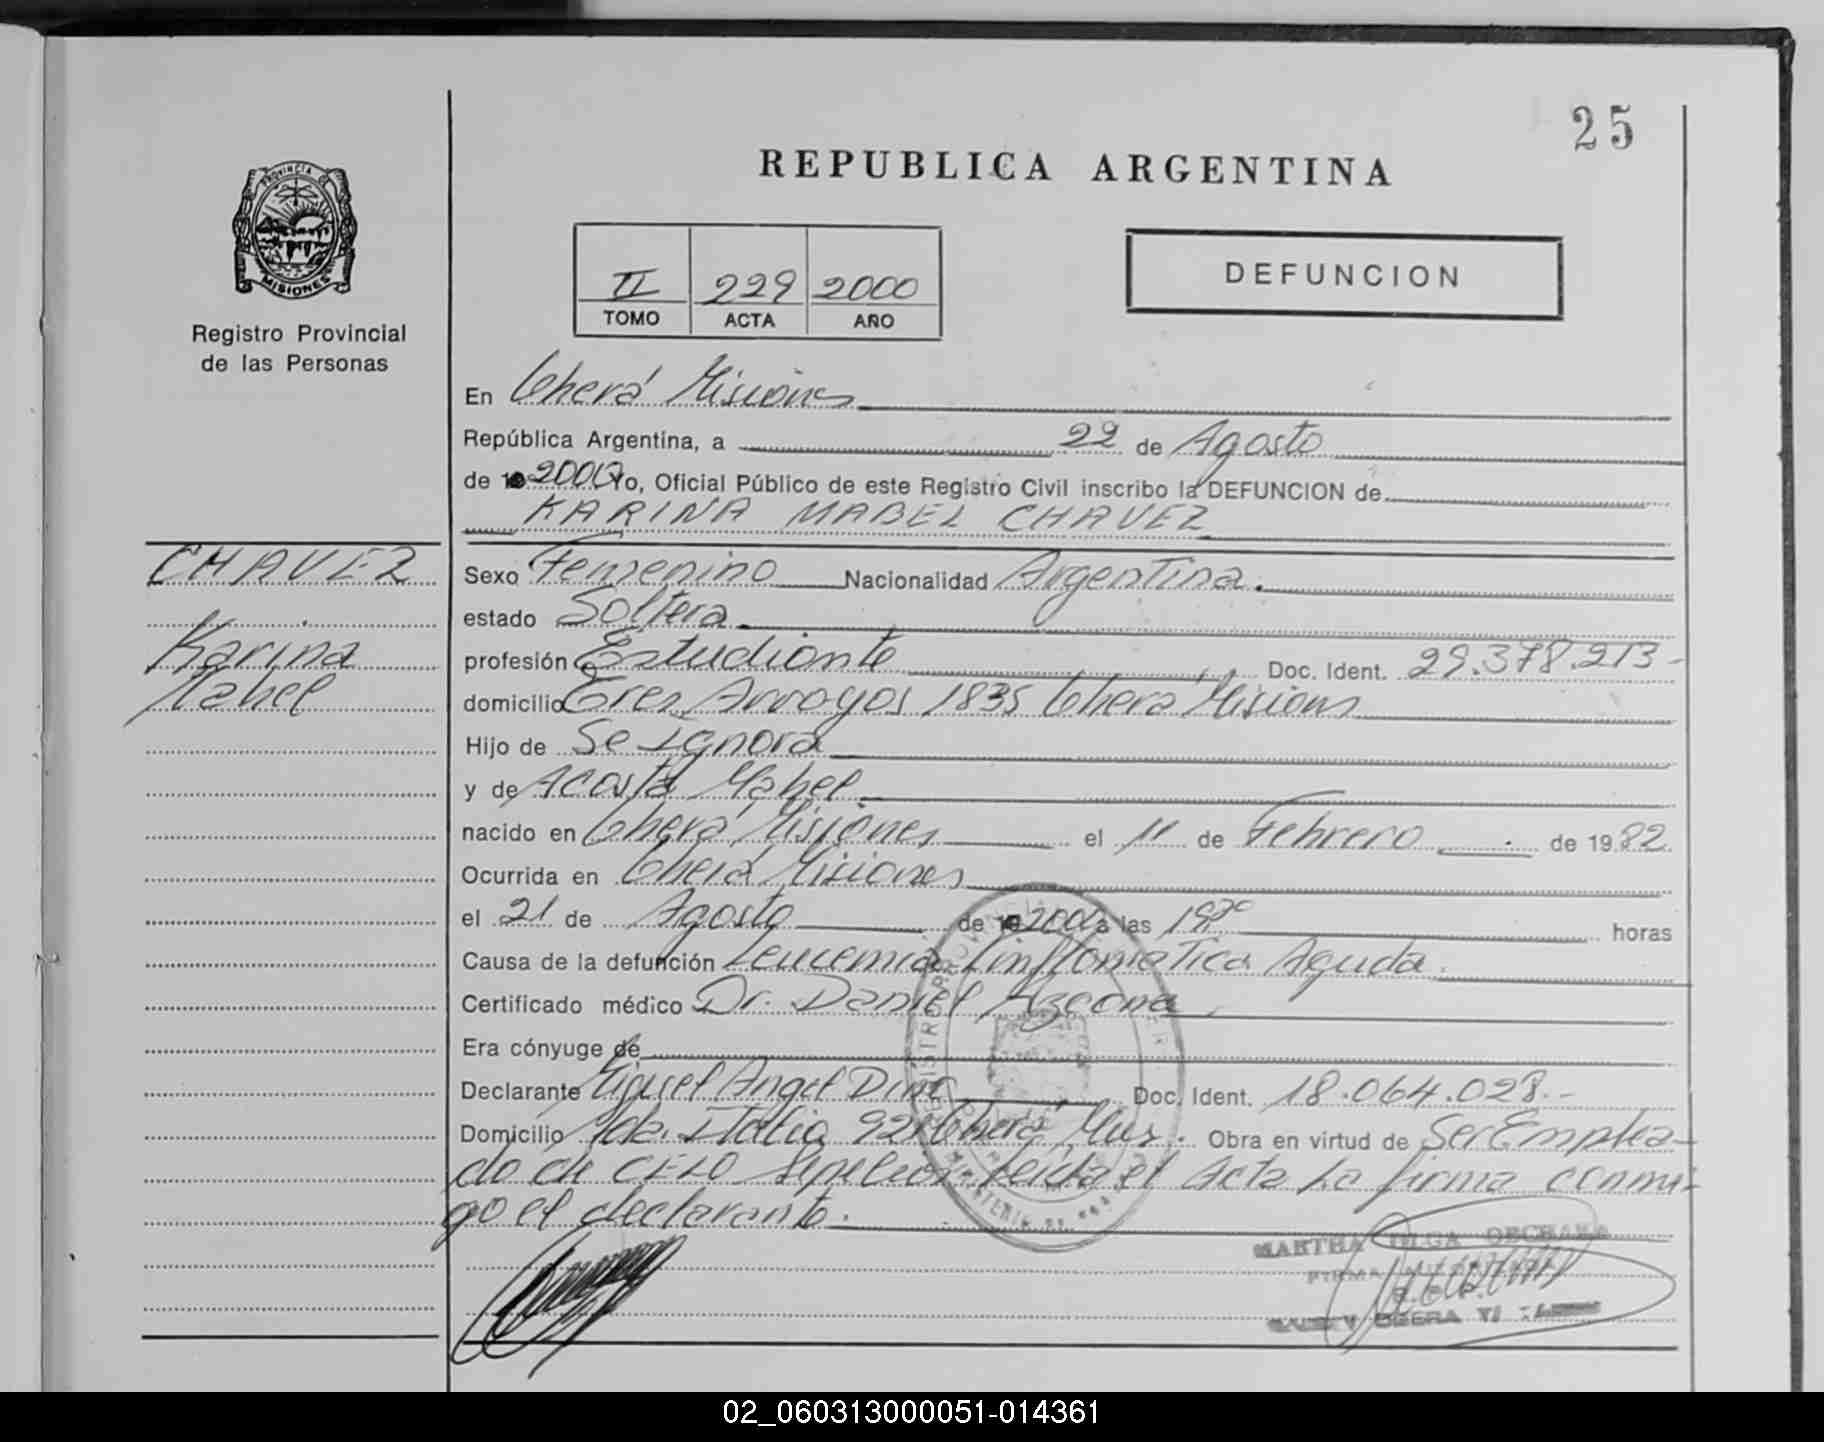 25
REPUBLICA ARGENTINA
PROVINCIA DE
MISIONES
Registro Provincial
de las Personas
II 229 2000
TOMO ACTA AÑO
DEFUNCION
En Oberá Misiones
República Argentina, a 22 de Agosto
de 19 2000 Yo, Oficial Público de este Registro Civil inscribo la DEFUNCION de
KARINA MABEL CHAVEZ
CHAVEZ
Karina
Mabel
Sexo Femenino Nacionalidad Argentina.
estado Soltera
profesión Estudiante Doc. Ident. 29.378.213-
domicilio Tres Arroyos 1835 Oberá Misiones
Hijo de Se ignora
y de Acosta Mabel
nacido en Oberá Misiones el 11 de Febrero de 1982
Ocurrida en Oberá Misiones
el 21 de Agosto de 19 2000 a las horas
Causa de la defunción Leucemia Aguda
Certificado médico Dr. Daniel Azcona
Era cónyuge de
Declarante Miguel Angel Doc. Ident. 18.064.028.-
Domicilio Italia 92 Oberá Mnes. Obra en virtud de Ser Emplea-
do de CELO Sepelios Leída el Acta La firma conmi-
go el declarante.
MARTHA OLGA DECHAKA
FIRMA AUTORIZADA
R.P.P.
02_060313000051-014361